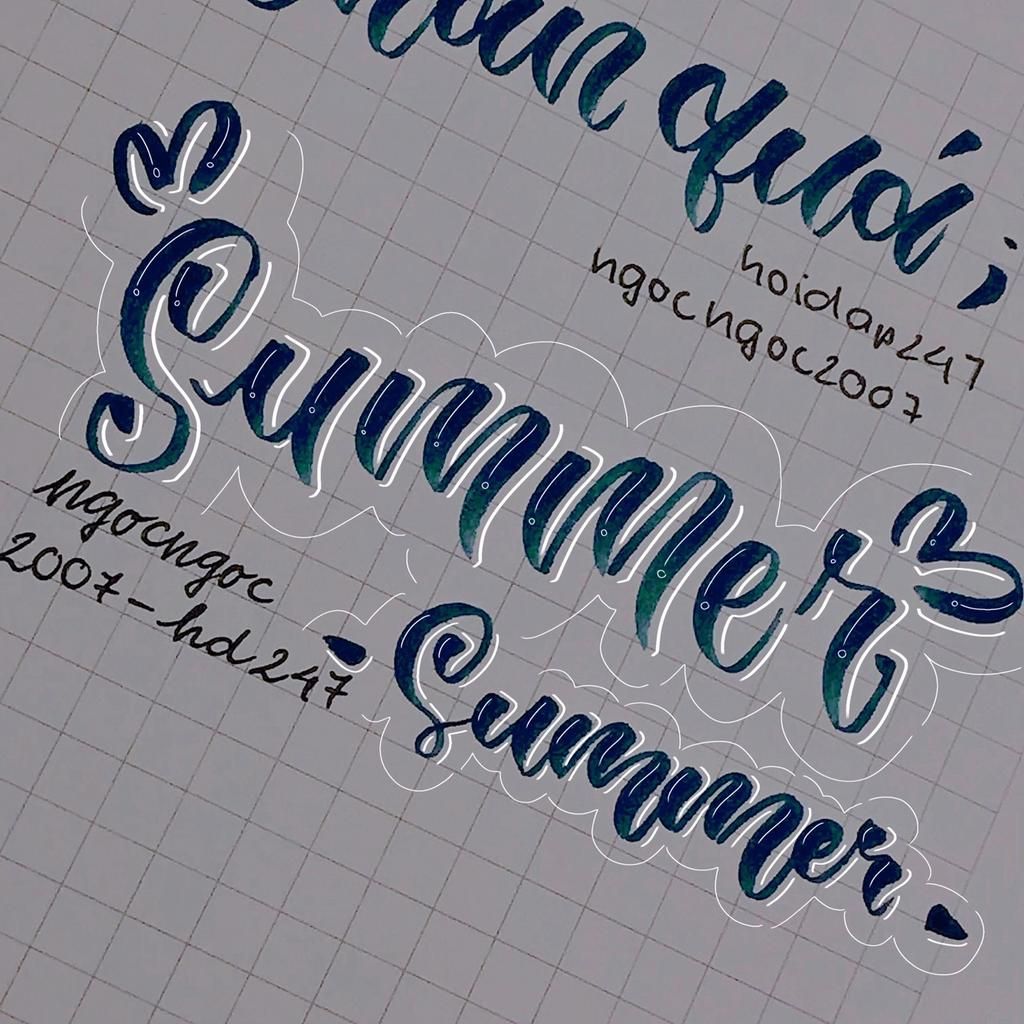 quá ;
hoidap247
ngocngoc2007
Summer
ngocngoc
2007-hd247
- Summer -